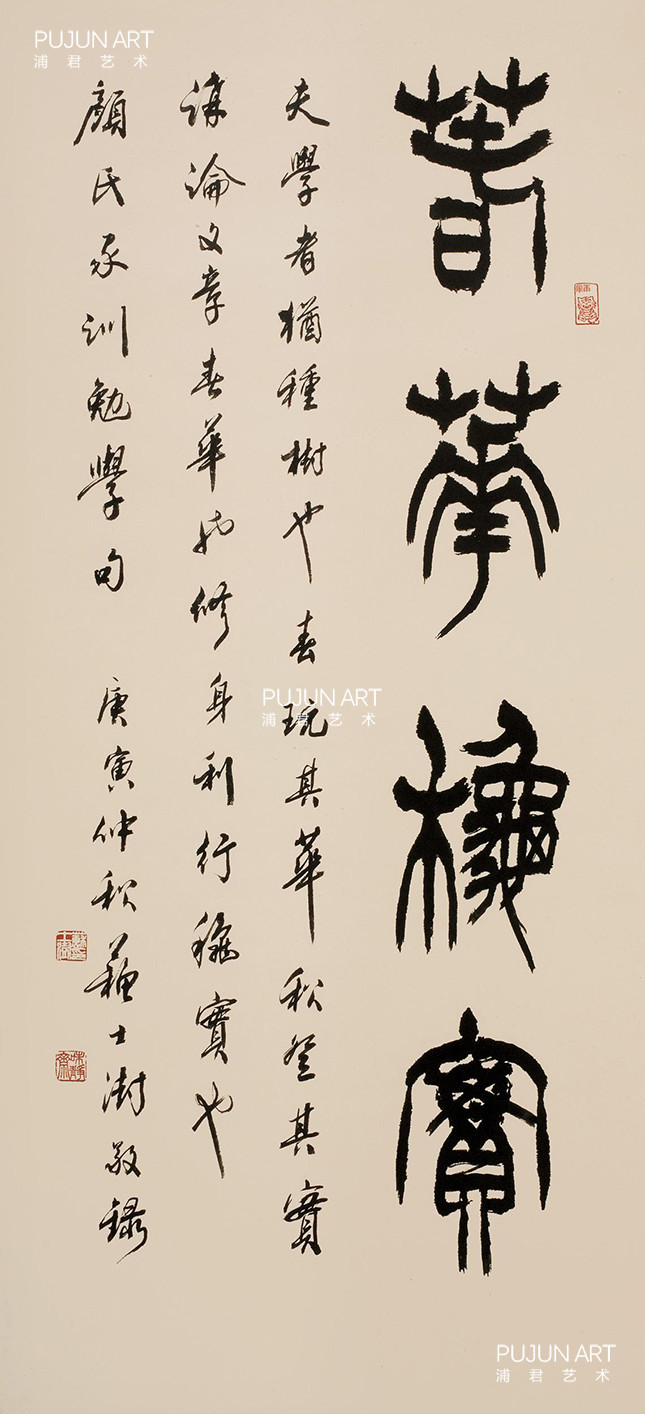 春華秋實
夫學者猶種樹也春玩其華秋登其實
講論文章春華也修身利行秋實也
顏氏家訓勉學句 庚寅仲秋蘇士澍敬錄
PUJUN ART
浦君艺术
PUJUN ART
浦君艺术
PUJUN ART
浦君艺术